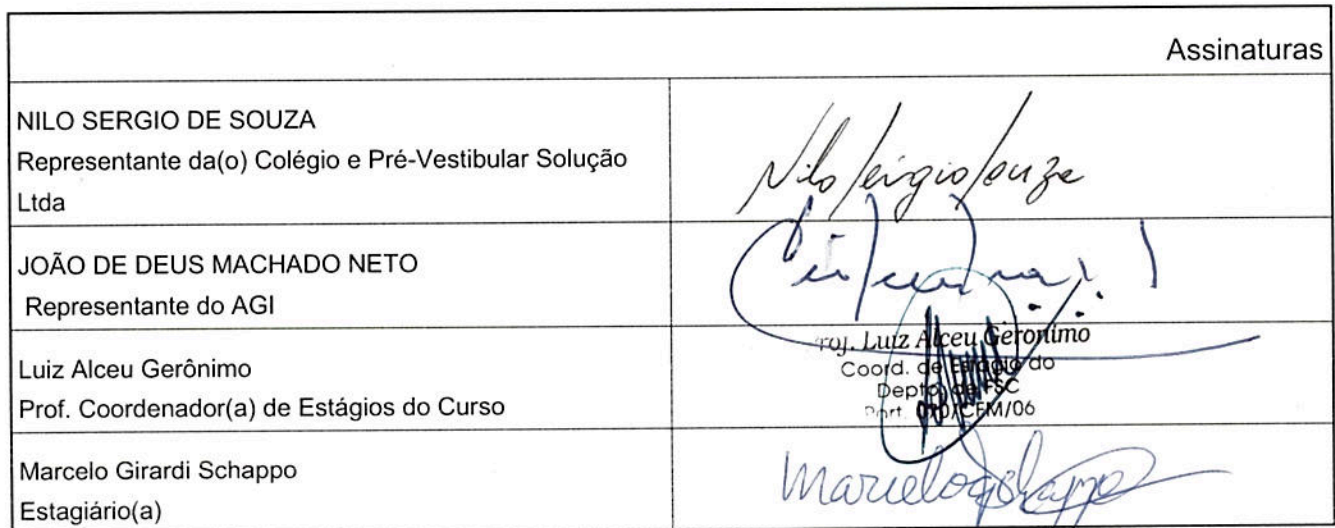 Assinaturas
NILO SERGIO DE SOUZA
Representante da(o) Colégio e Pré-Vestibular Solução
Ltda
Nilo Sérgio Souza
JOÃO DE DEUS MACHADO NETO
Representante do AGI
Luiz Alceu Gerônimo
Prof. Coordenador(a) de Estágios do Curso
Prof. Luiz Alceu Geronimo
Coord. de Estágio do
Depto. de FSC
Port. /CFM/06
Marcelo Girardi Schappo
Estagiário(a)
Marcelo G Schappo